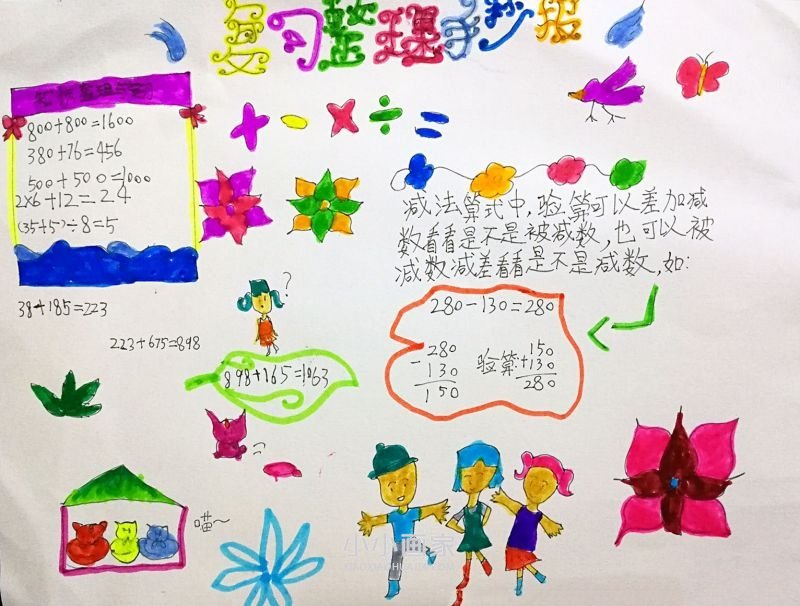 复习整理手抄报
800+800=1600
380+76=456
500+500=1000
2×6+12=24
(35+5)÷8=5
+ - × ÷ =
减法算式中,验算可以差加减
数看看是不是被减数,也可以被
减数减差看看是不是减数,如:
38+185=223
?
280-130=280
223+675=898
280
-130
150
验算:
150
+130
280
898+165=1063
喵~
小小画家
XIAOXIAOHUAJIA.COM